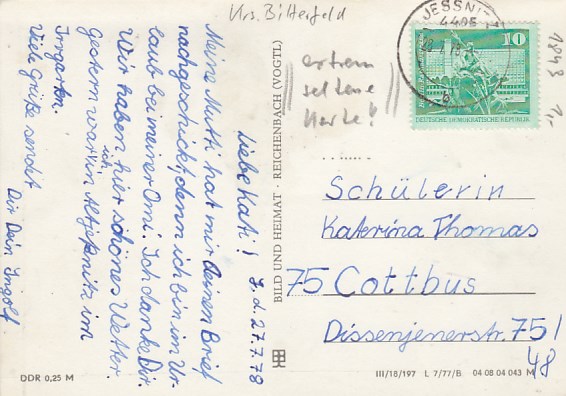 Krs. Bitterfeld
extrem
seltene
Karte!
JESSNITZ
4405
10
DEUTSCHE DEMOKRATISCHE REPUBLIK
J. d. 27.7.78
Liebe Kati!
Meine Mutti hat mir Deinen Brief
nachgeschickt, denn ich bin im Ur-
laub bei meiner Omi. Ich danke Dir.
Wir haben hier schönes Wetter.
Gestern war ich in Altjeßnitz im
Irrgarten.
Viele Grüße sendet
Dir Dein Ingolf.
BILD UND HEIMAT · REICHENBACH (VOGTL)
Schülerin
Katerina Thomas
75 Cottbus
Dissenjenerstr. 75/
48
DDR 0,25 M
III/18/197 L 7/77/B 04 08 04 043 M